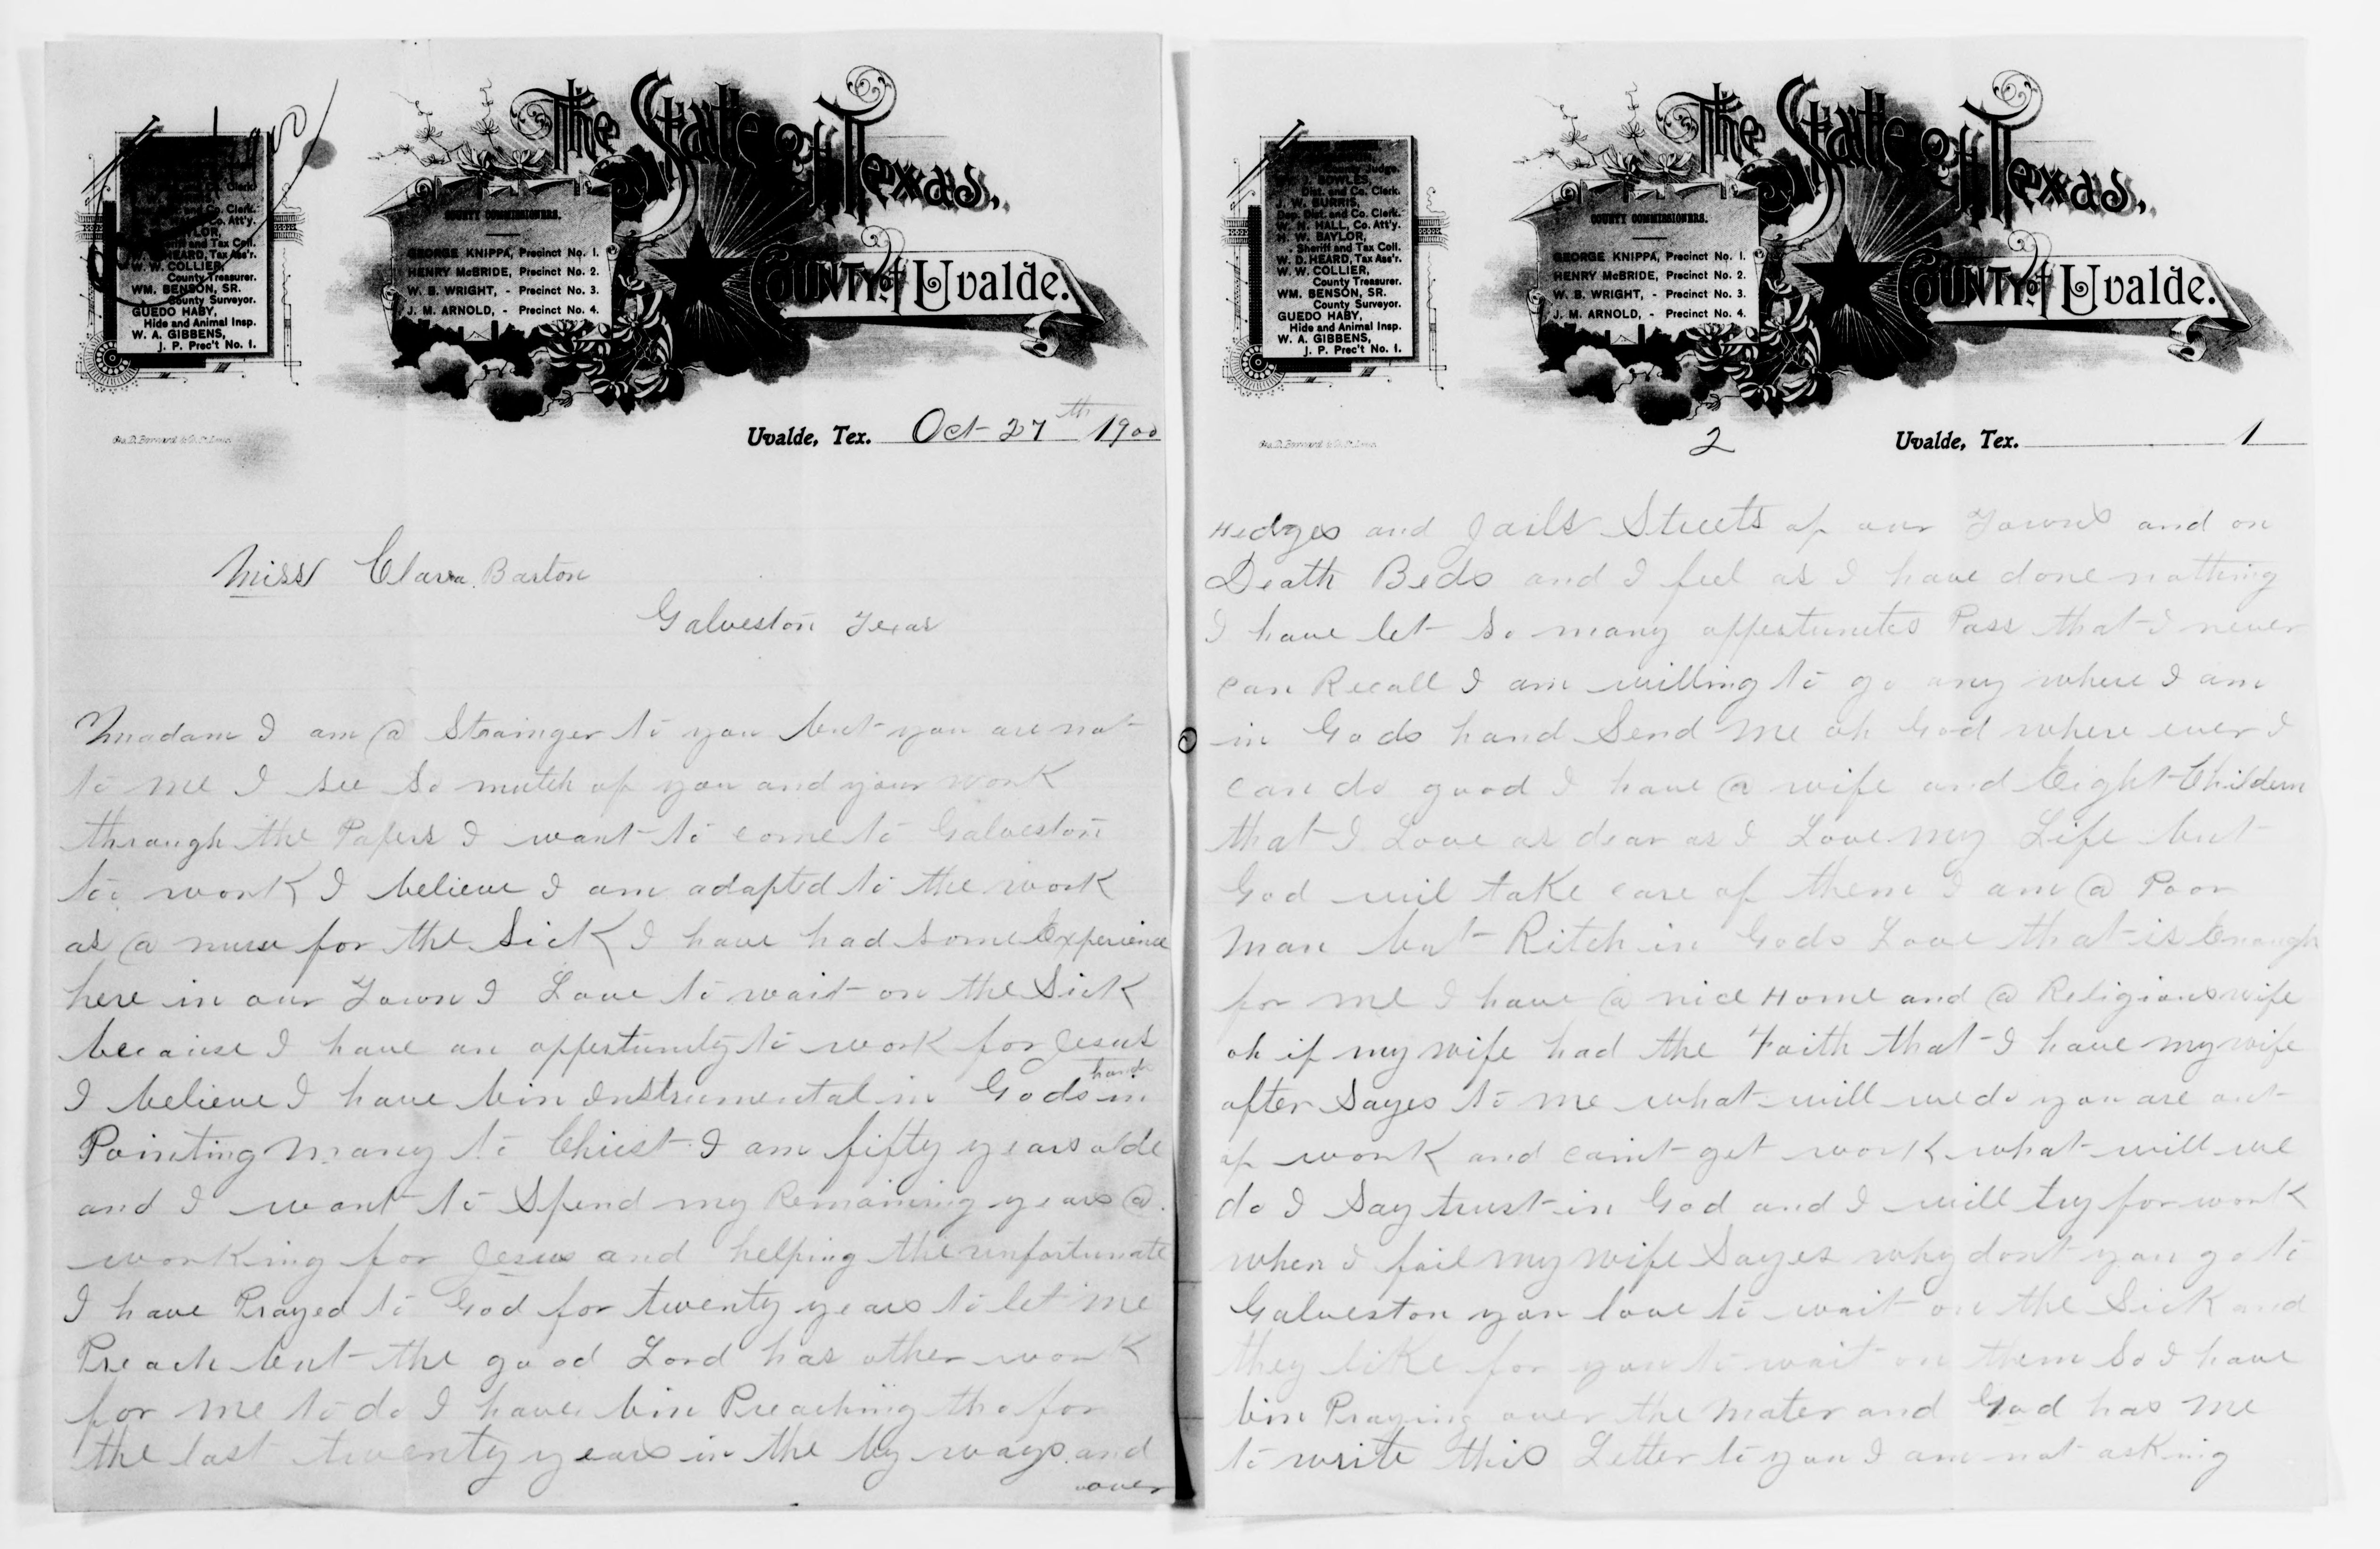 The State of Texas,
County of Uvalde.
Co. Clerk.
Co. Att'y.
and Tax Coll.
HEARD, Tax Ass'r.
W. W. COLLIER,
County Treasurer.
WM. BENSON, SR.
County Surveyor.
GUEDO HABY,
Hide and Animal Insp.
W. A. GIBBENS,
J. P. Prec't No. 1.
COUNTY COMMISSIONERS.
GEORGE KNIPPA, Precinct No. 1.
HENRY McBRIDE, Precinct No. 2.
W. B. WRIGHT, - Precinct No. 3.
J. M. ARNOLD, - Precinct No. 4.
Uvalde, Tex. Oct 27th 1900
Miss Clara Barton
Galveston Texas
Madam I am @ Strainger to you but you are not
to me I see so mutch of you and your work
through the Papers I want to come to Galveston
too work I believe I am adapted to the work
as @ nurse for the Sick I have had some Experience
here in our Town I Love to wait on the Sick
because I have an oppertunity to work for Jesus
I believe I have bin instrumental in Gods hands in
Pointing many to Christ I am fifty years olde
and I want to Spend my Remaining years @
working for Jesus and helping the unfortunate
I have Prayed to God for twenty years to let me
Preach but the good Lord has other work
for me to do I have bin Preaching tho for
the last twenty years in the by ways and
over
The State of Texas,
County of Uvalde.
Judge.
BOWLES,
Dist. and Co. Clerk.
J. W. BURRIS,
Dep. Dist. and Co. Clerk.
W. N. HALL, Co. Att'y.
H. W. BAYLOR,
Sheriff and Tax Coll.
W. D. HEARD, Tax Ass'r.
W. W. COLLIER,
County Treasurer.
WM. BENSON, SR.
County Surveyor.
GUEDO HABY,
Hide and Animal Insp.
W. A. GIBBENS,
J. P. Prec't No. 1.
COUNTY COMMISSIONERS.
GEORGE KNIPPA, Precinct No. 1.
HENRY McBRIDE, Precinct No. 2.
W. B. WRIGHT, - Precinct No. 3.
J. M. ARNOLD, - Precinct No. 4.
2 Uvalde, Tex. 1
Hedges and Jails Streets of our Towns and on
Death Beds and I feel as I have done nothing
I have let so many oppertunites Pass that I never
can Recall I am willing to go any where I am
in Gods hand Send me oh God where ever I
can do good I have @ wife and Eight Childern
that I Love as dear as I Love my Life but
God wil take care of them I am @ Poor
man but Ritch in Gods Love that is Enough
for me I have @ nice Home and @ Religious wife
oh if my wife had the Faith that I have my wife
often Sayes to me what will we do you are out
of work and caint get work what will we
do I Say trust in God and I will try for work
when I fail my wife Sayes why dont you go to
Galveston you love to wait on the Sick and
they like for you to wait on them So I have
bin Praying over the mater and God has me
to write this Letter to you I am not asking